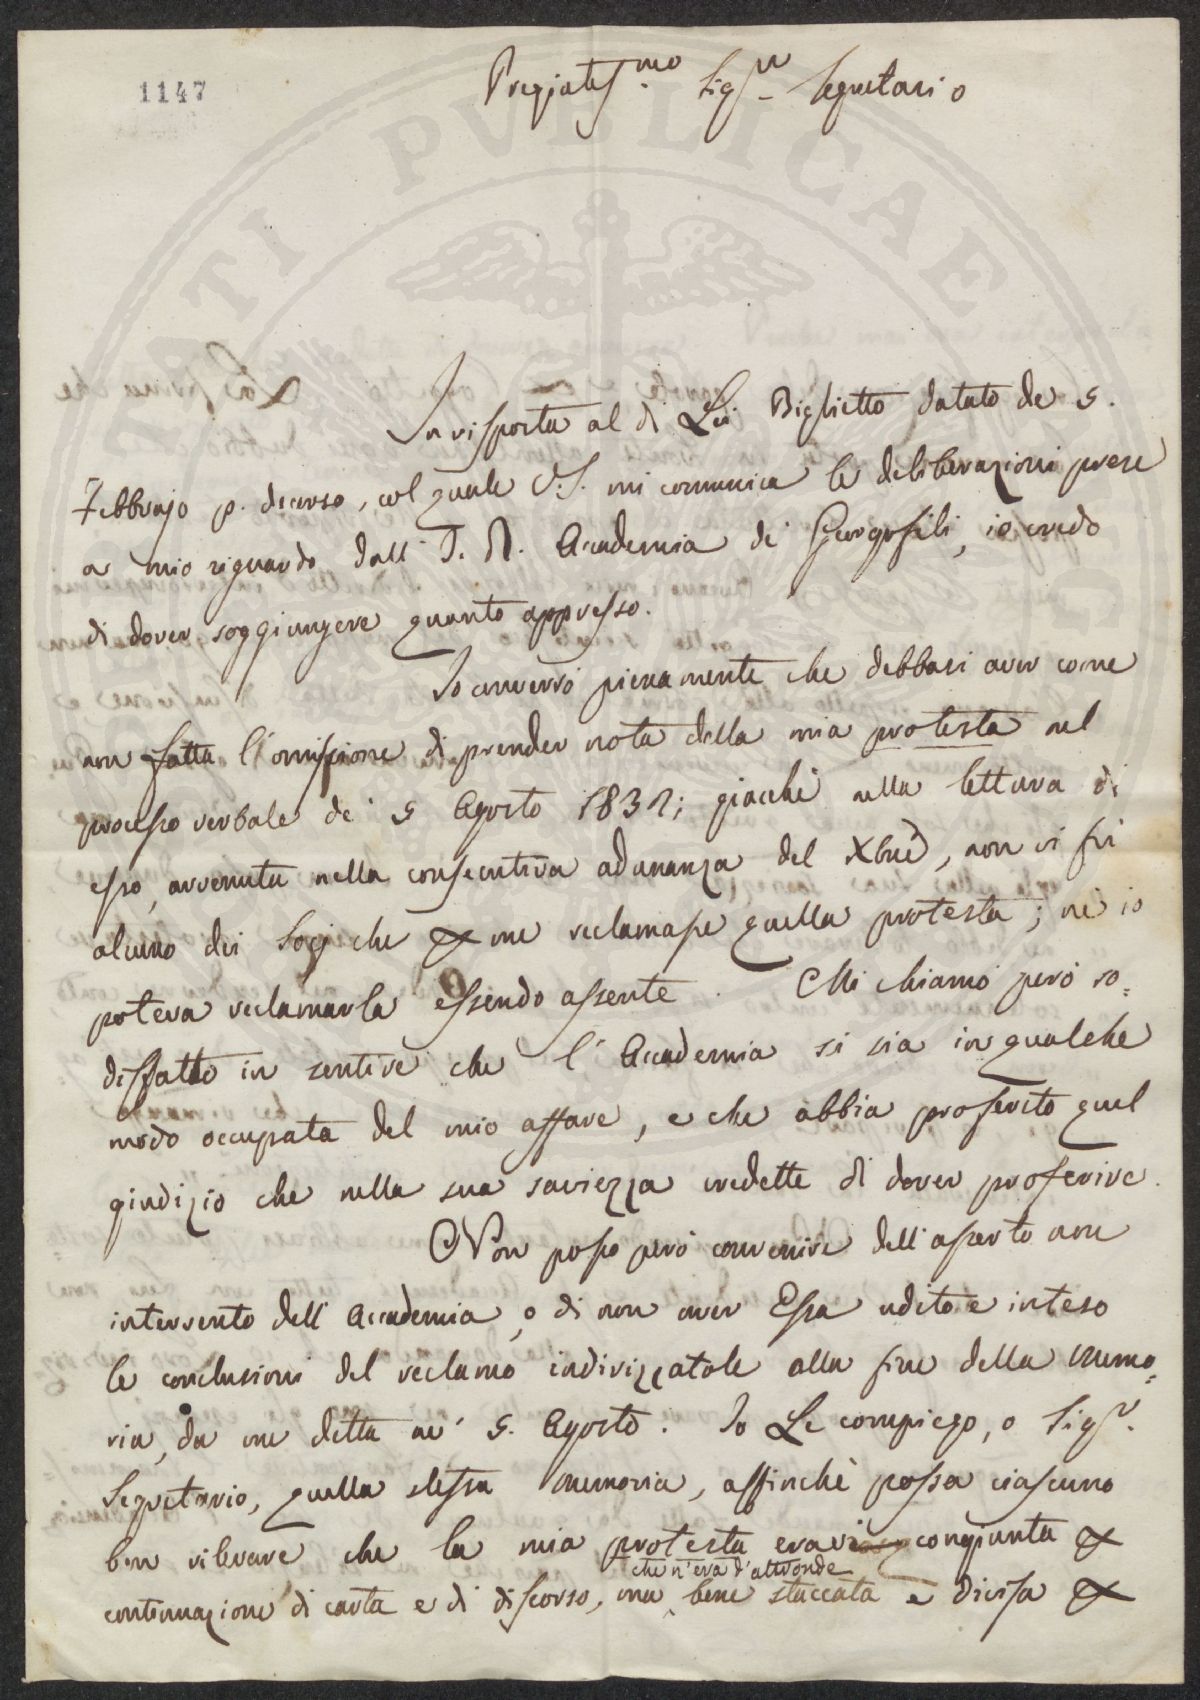 1147
Pregiatis.mo Sig.r Segretario
In risposta al di Lei Biglietto datato de 5.
Febbrajo p. decorso, col quale V.S. mi comunica le deliberazioni prese
a mio riguardo dall' I. R. Accademia de' Georgofili, io credo
di dover soggiungere quanto appresso.
Io converrò pienamente che debbasi aver come
non fatta l'omissione di prender nota della mia protesta nel
processo verbale de' 5 Agosto 1832; giacchè nella lettura di
esso, avvenuta nella consecutiva adunanza del Xbre, non vi fu
alcuno dei Socj che per me reclamasse quella protesta; nè io
poteva reclamarla essendo assente. Mi chiamo però so=
disfatto in sentire che l'Accademia si sia in qualche
modo occupata del mio affare, e che abbia proferito quel
giudizio che nella sua saviezza credette di dover proferire.
Non posso però convenire dell'asserto non
intervento dell'Accademia, o di non aver Essa udito e inteso
le conclusioni del reclamo indirizzatole alla fine della Memo=
ria, da me detta ne' 5. Agosto. Io Le compiego, o Sig.r
Segretario, quella stessa memoria, affinchè possa ciascuno
ben rilevare che la mia protesta eravi congiunta per
che n'era d'altronde
continuazione di carta e di discorso, ma bene staccata e divisa per
STATI PVBLICAE